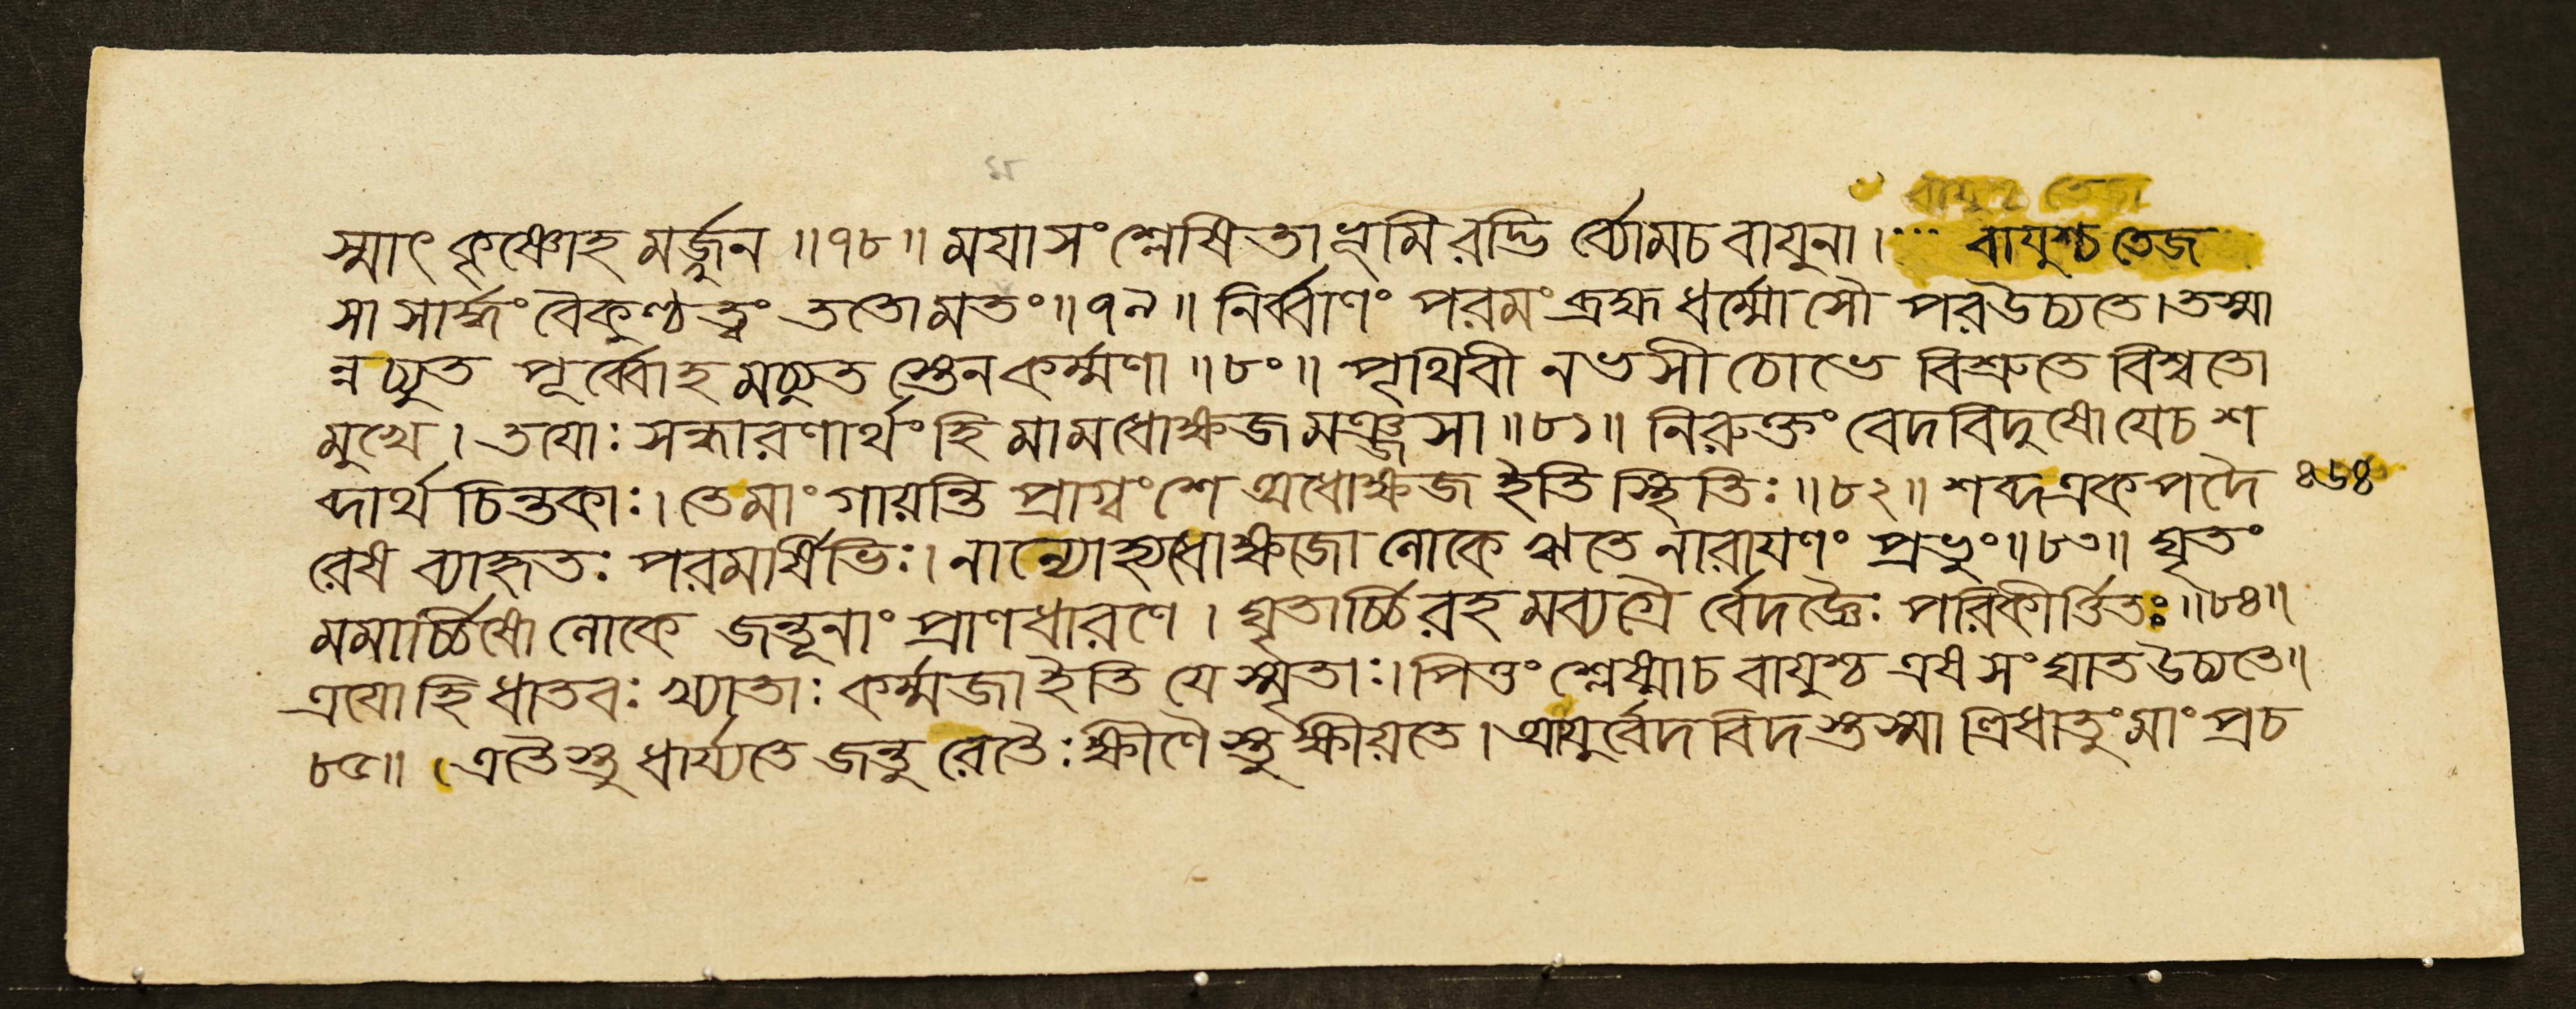 স্মাৎ কৃষ্ণোহ মর্জ্জুন ॥৭৮॥ ময়া সংশ্লেষিতা ভূমি রদ্ভি র্ব্যোমচ বায়ুনা। বায়ুশ্চ তেজ
সা সার্দ্ধং বৈকুণ্ঠত্বং ততো মতং ॥৭৯॥ নির্ব্বাণং পরমং ব্রহ্ম ধর্ম্মো সৌ পর উচ্যতে। তস্মা
ন্ন চ্যুত পূর্ব্বোহ মচ্যুত স্তেন কর্ম্মণা ॥৮০॥ পৃথিবী নভসী চোভে বিশ্রুতে বিশ্বতো
মুখে। তয়োঃ সন্ধারণার্থং হি মামধোক্ষজ মঞ্জসা ॥৮১॥ নিরুক্তং বেদ বিদুষো যেচ শ
ব্দার্থ চিন্তকাঃ। তে মাং গায়ন্তি প্রাগ্বংশে অধোক্ষজ ইতি স্থিতিঃ ॥৮২॥ শব্দ একপদৈ ৪৬৪
রেষ ব্যাহৃতঃ পরমর্ষিভিঃ। নান্যোহ্যধোক্ষজো লোকে ঋতে নারায়ণং প্রভুং ॥৮৩॥ ঘৃতং
মমার্চ্চিষো লোকে জন্তূনাং প্রাণধারণে। ঘৃতার্চ্চি রহ মব্যগ্রৈ র্বেদজ্ঞৈঃ পরিকীর্ত্তিতঃ ॥৮৪॥
ত্রয়ো হি ধাতবঃ খ্যাতাঃ কর্ম্মজা ইতি যে স্মৃতাঃ। পিত্তং শ্লেষ্মাচ বায়ুশ্চ এষ সংঘাত উচ্যতে॥
৮৫॥ এতৈস্তু ধার্য্যতে জন্তু রেতৈঃ ক্ষীণৈস্তু ক্ষীয়তে। আয়ুর্বেদ বিদ স্তস্মা ত্ত্রিধাতুং মাং প্রচ